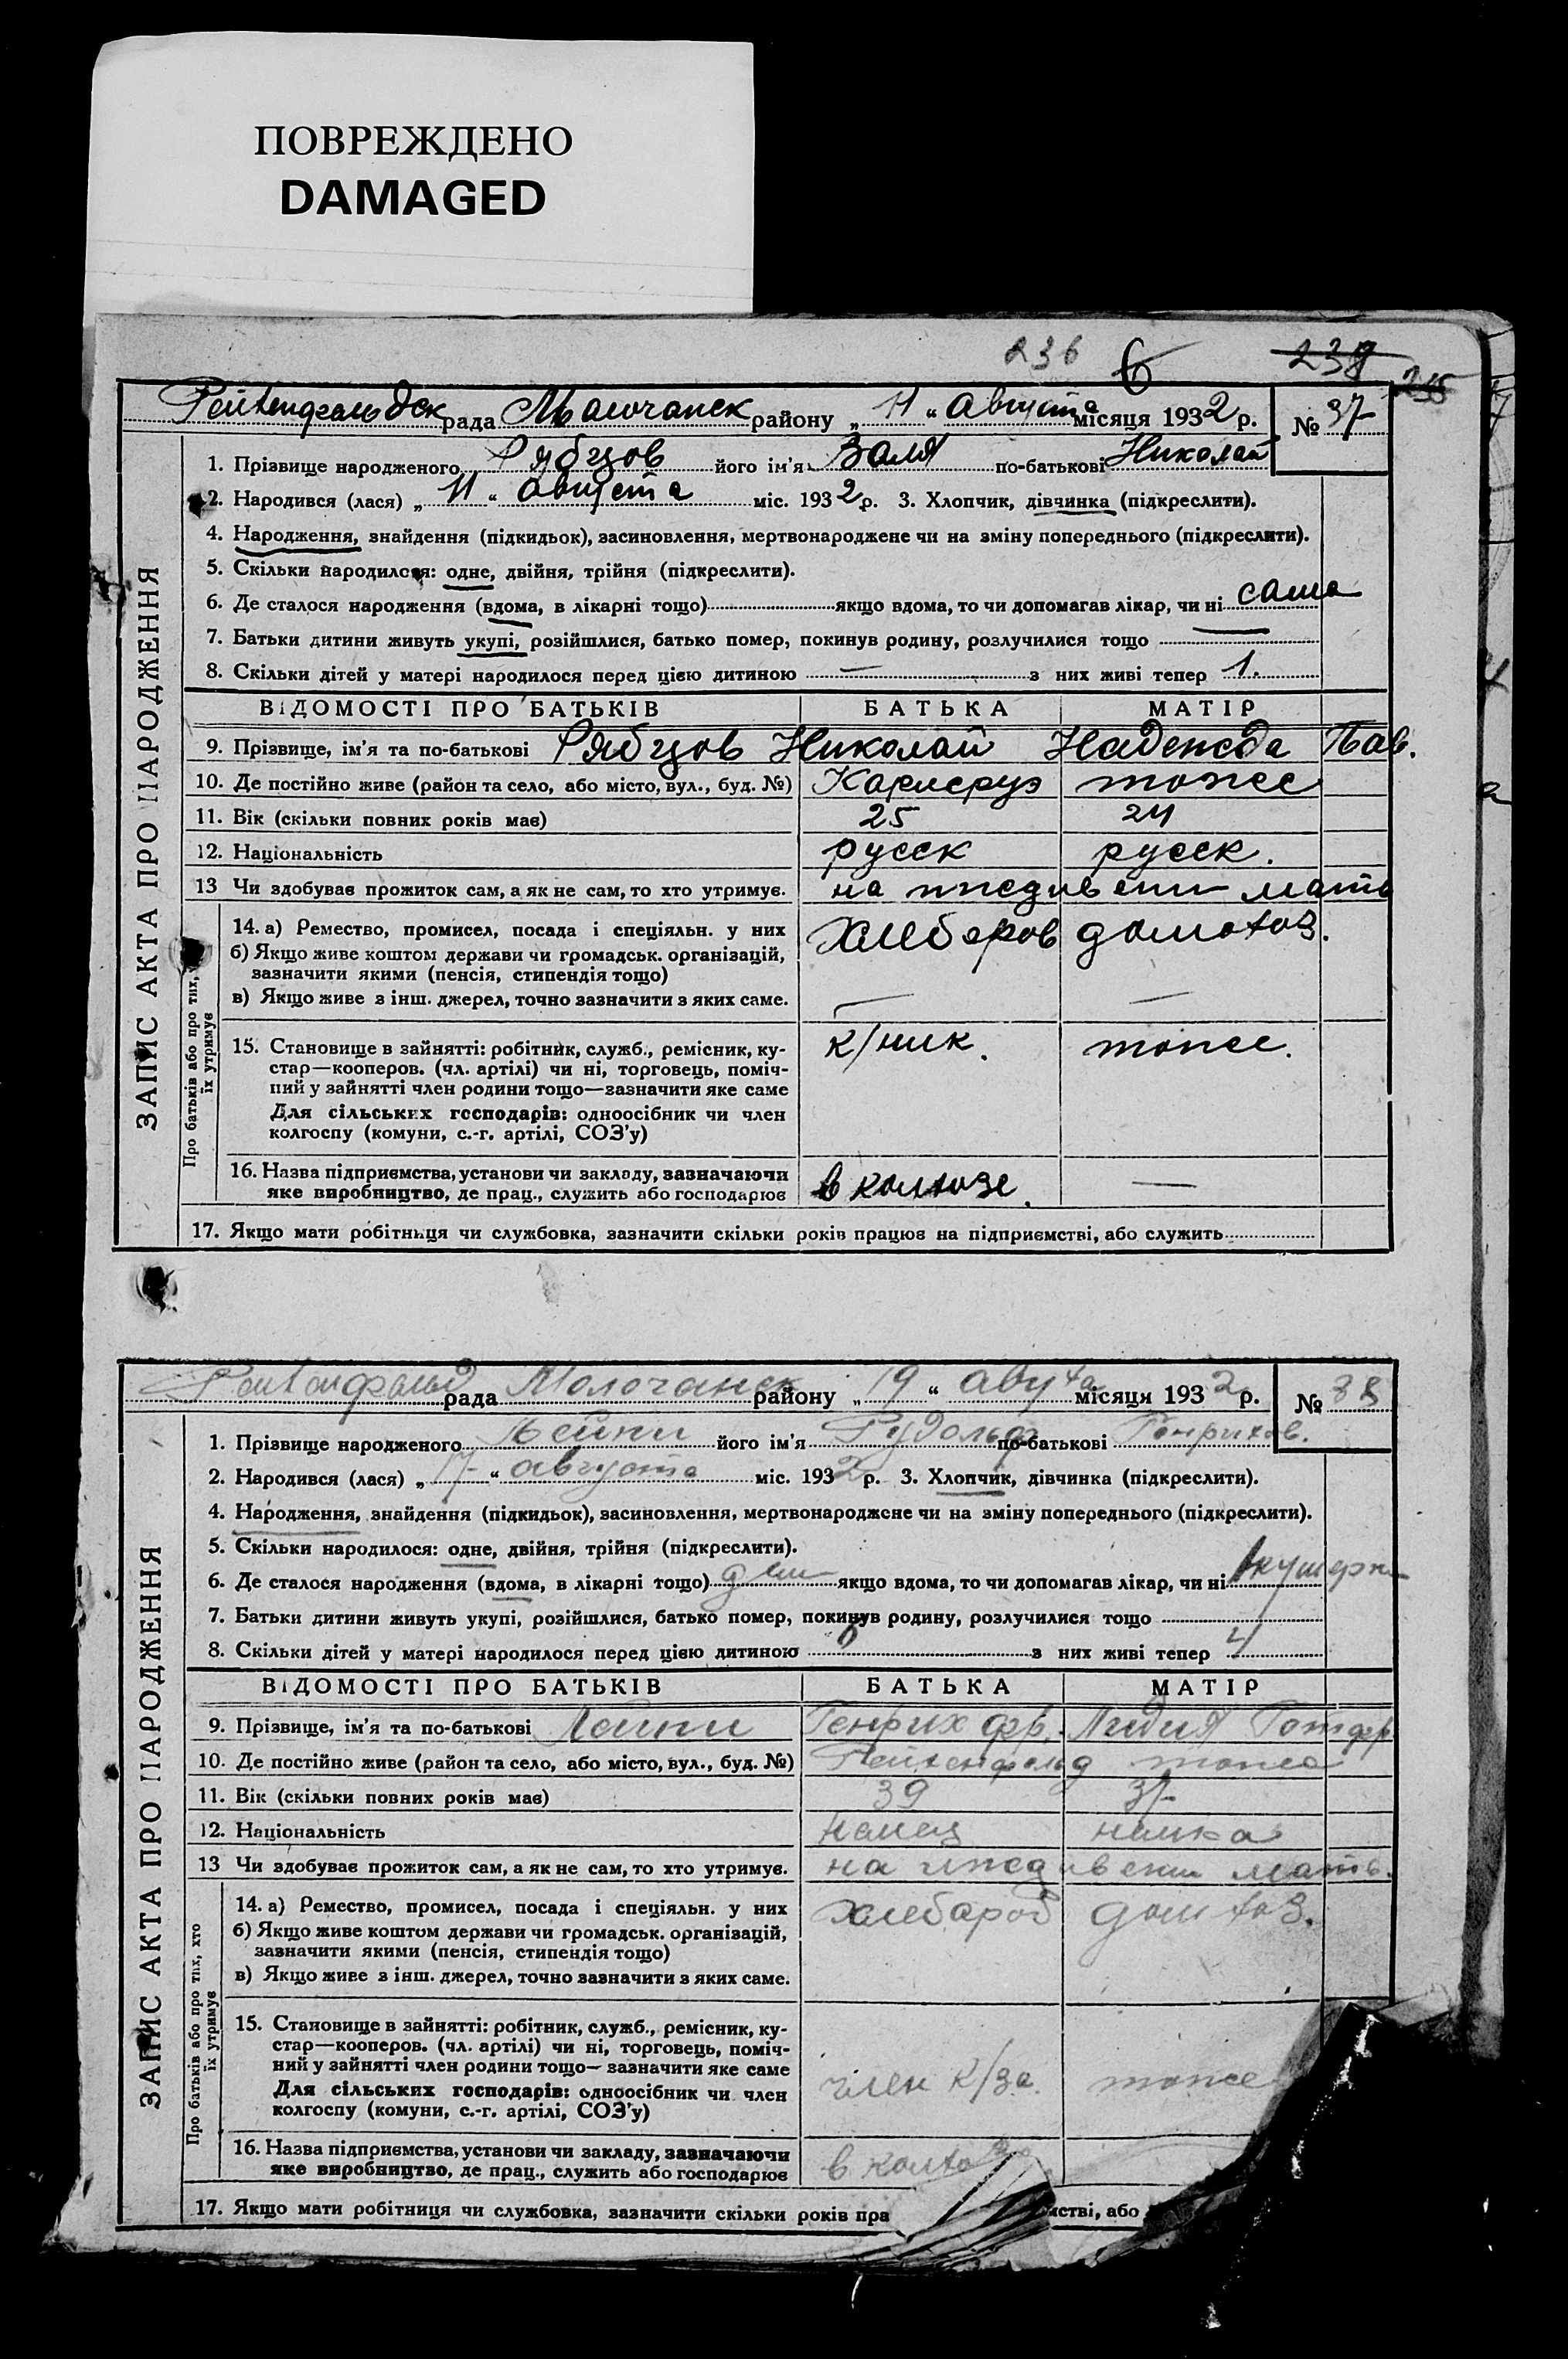 ПОВРЕЖДЕНО
DAMAGED
236 6 238 235
Рейхенфельдск рада Молочанск району „ 11 “ Августа місяця 1932 р. № 37
1. Прізвище народженого Рябцов його ім'я Валя по-батькові Николай
2. Народився (лася) „ 11 “ августа міс. 1932 р. 3. Хлопчик, дівчинка (підкреслити).
4. Народження, знайдення (підкидьок), засиновлення, мертвонароджене чи на зміну попереднього (підкреслити).
5. Скільки народилося: одне, двійня, трійня (підкреслити).
6. Де сталося народження (вдома, в лікарні тощо) якщо вдома, то чи допомагав лікар, чи ні сама
7. Батьки дитини живуть укупі, розійшлися, батько помер, покинув родину, розлучилися тощо
8. Скільки дітей у матері народилося перед цією дитиною — з них живі тепер 1.
ВІДОМОСТІ ПРО БАТЬКІВ БАТЬКА МАТІР
9. Прізвище, ім'я та по-батькові Рябцов Николай Надежда Пав.
10. Де постійно живе (район та село, або місто, вул., буд. №) Карлсруэ тоже
11. Вік (скільки повних років має) 25 24
12. Національність русск русск.
13 Чи здобував прожиток сам, а як не сам, то хто утримує. на иждивении мать
14. а) Ремество, промисел, посада і спеціяльн. у них хлебороб домохоз.
б) Якщо живе коштом держави чи громадськ. організацій,
зазначити якими (пенсія, стипендія тощо)
в) Якщо живе з інш. джерел, точно зазначити з яких саме. — —
15. Становище в зайнятті: робітник, служб., ремісник, ку- к/ник. тоже.
стар—кооперов. (чл. артілі) чи ні, торговець, поміч-
ний у зайнятті член родини тощо—зазначити яке саме
Для сільських господарів: одноосібник чи член
колгоспу (комуни, с.-г. артілі, СОЗ'у)
16. Назва підприємства, установи чи закладу, зазначаючи в колхозе. —
яке виробництво, де прац., служить або господарює
17. Якщо мати робітниця чи службовка, зазначити скільки років працює на підприємстві, або служить
ЗАПИС АКТА ПРО НАРОДЖЕННЯ
Про батьків або про тих,
їх утримує
Рейхенфельд рада Молочанск району „ 19 “ авг-та місяця 1932 р. № 38
1. Прізвище народженого його ім'я Рудольф по-батькові Генрихов.
2. Народився (лася) „ 17 “ августа міс. 1932 р. 3. Хлопчик, дівчинка (підкреслити).
4. Народження, знайдення (підкидьок), засиновлення, мертвонароджене чи на зміну попереднього (підкреслити).
5. Скільки народилося: одне, двійня, трійня (підкреслити).
6. Де сталося народження (вдома, в лікарні тощо) якщо вдома, то чи допомагав лікар, чи ні
7. Батьки дитини живуть укупі, розійшлися, батько помер, покинув родину, розлучилися тощо
8. Скільки дітей у матері народилося перед цією дитиною 6 з них живі тепер 4
ВІДОМОСТІ ПРО БАТЬКІВ БАТЬКА МАТІР
9. Прізвище, ім'я та по-батькові Генрих Фр. Лидия
10. Де постійно живе (район та село, або місто, вул., буд. №) Рейхенфельд тоже
11. Вік (скільки повних років має) 39 37
12. Національність немец немка
13 Чи здобував прожиток сам, а як не сам, то хто утримує. на иждивении мать.
14. а) Ремество, промисел, посада і спеціяльн. у них хлебороб домхоз.
б) Якщо живе коштом держави чи громадськ. організацій,
зазначити якими (пенсія, стипендія тощо)
в) Якщо живе з інш. джерел, точно зазначити з яких саме.
15. Становище в зайнятті: робітник, служб., ремісник, ку-
стар—кооперов. (чл. артілі) чи ні, торговець, поміч-
ний у зайнятті член родини тощо—зазначити яке саме
Для сільських господарів: одноосібник чи член член к/за. тоже
колгоспу (комуни, с.-г. артілі, СОЗ'у)
16. Назва підприємства, установи чи закладу, зазначаючи в колхозе
яке виробництво, де прац., служить або господарює
17. Якщо мати робітниця чи службовка, зазначити скільки років пра мстві, або
ЗАПИС АКТА ПРО НАРОДЖЕННЯ
Про батьків або про тих, хто
їх утримує